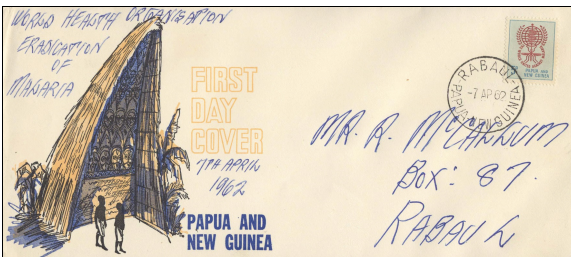 WORLD HEALTH ORGANISATION
ERADICATION
OF
MANARIA
FIRST
DAY
COVER
7TH APRIL
1962
PAPUA AND
NEW GUINEA
PAPUA AND
NEW GUINEA
RABAUL
-7 AP 62
PAPUA-N.GUINEA
MR. R.
BOX: 87.
RABAUL